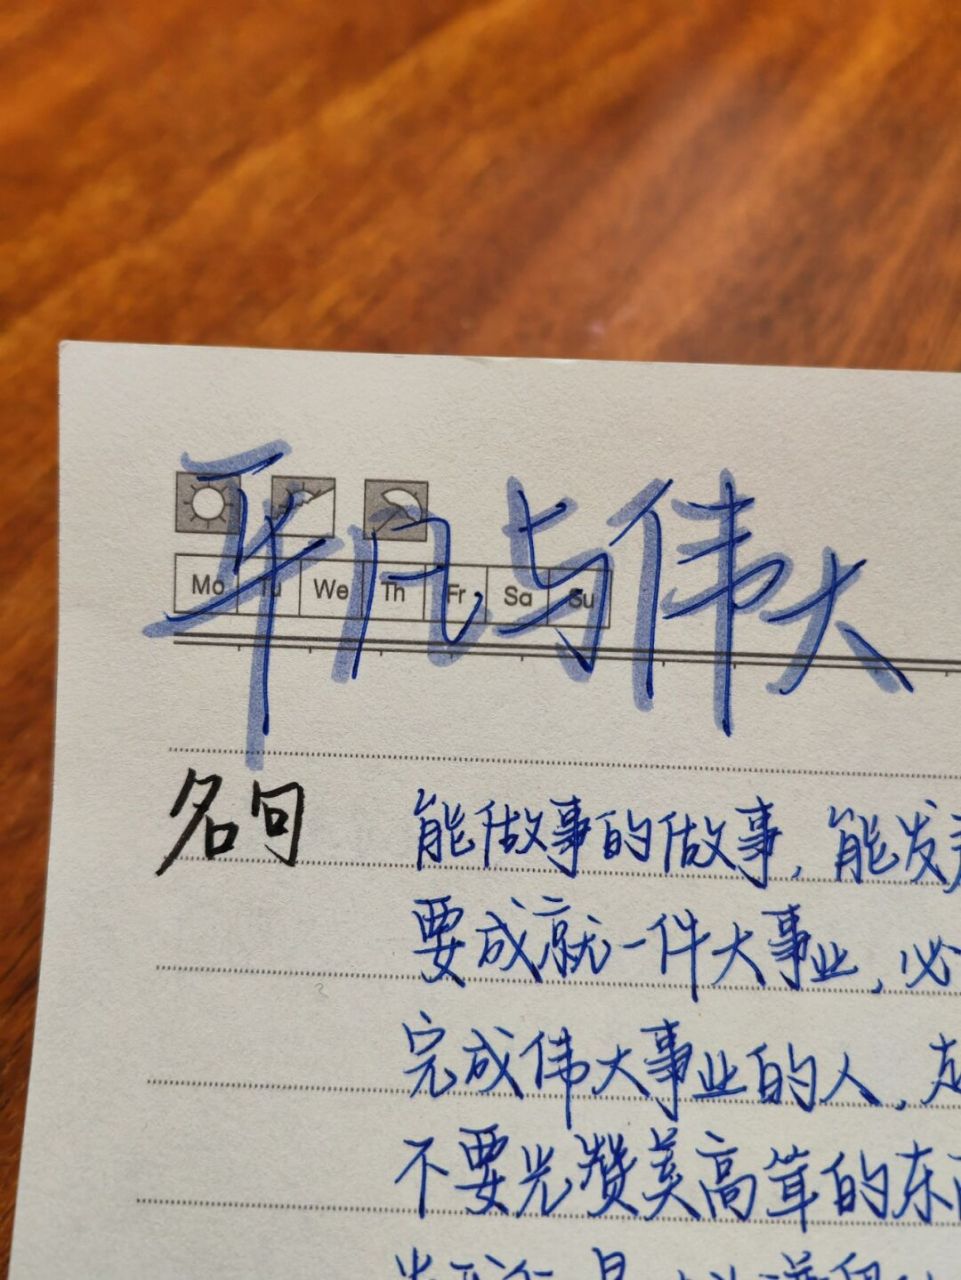 平凡与伟大
Mo Tu We Th Fr Sa Su
名句 能做事的做事，能发
要成就一件大事业，必
完成伟大事业的人，
不要光赞美高耸的东